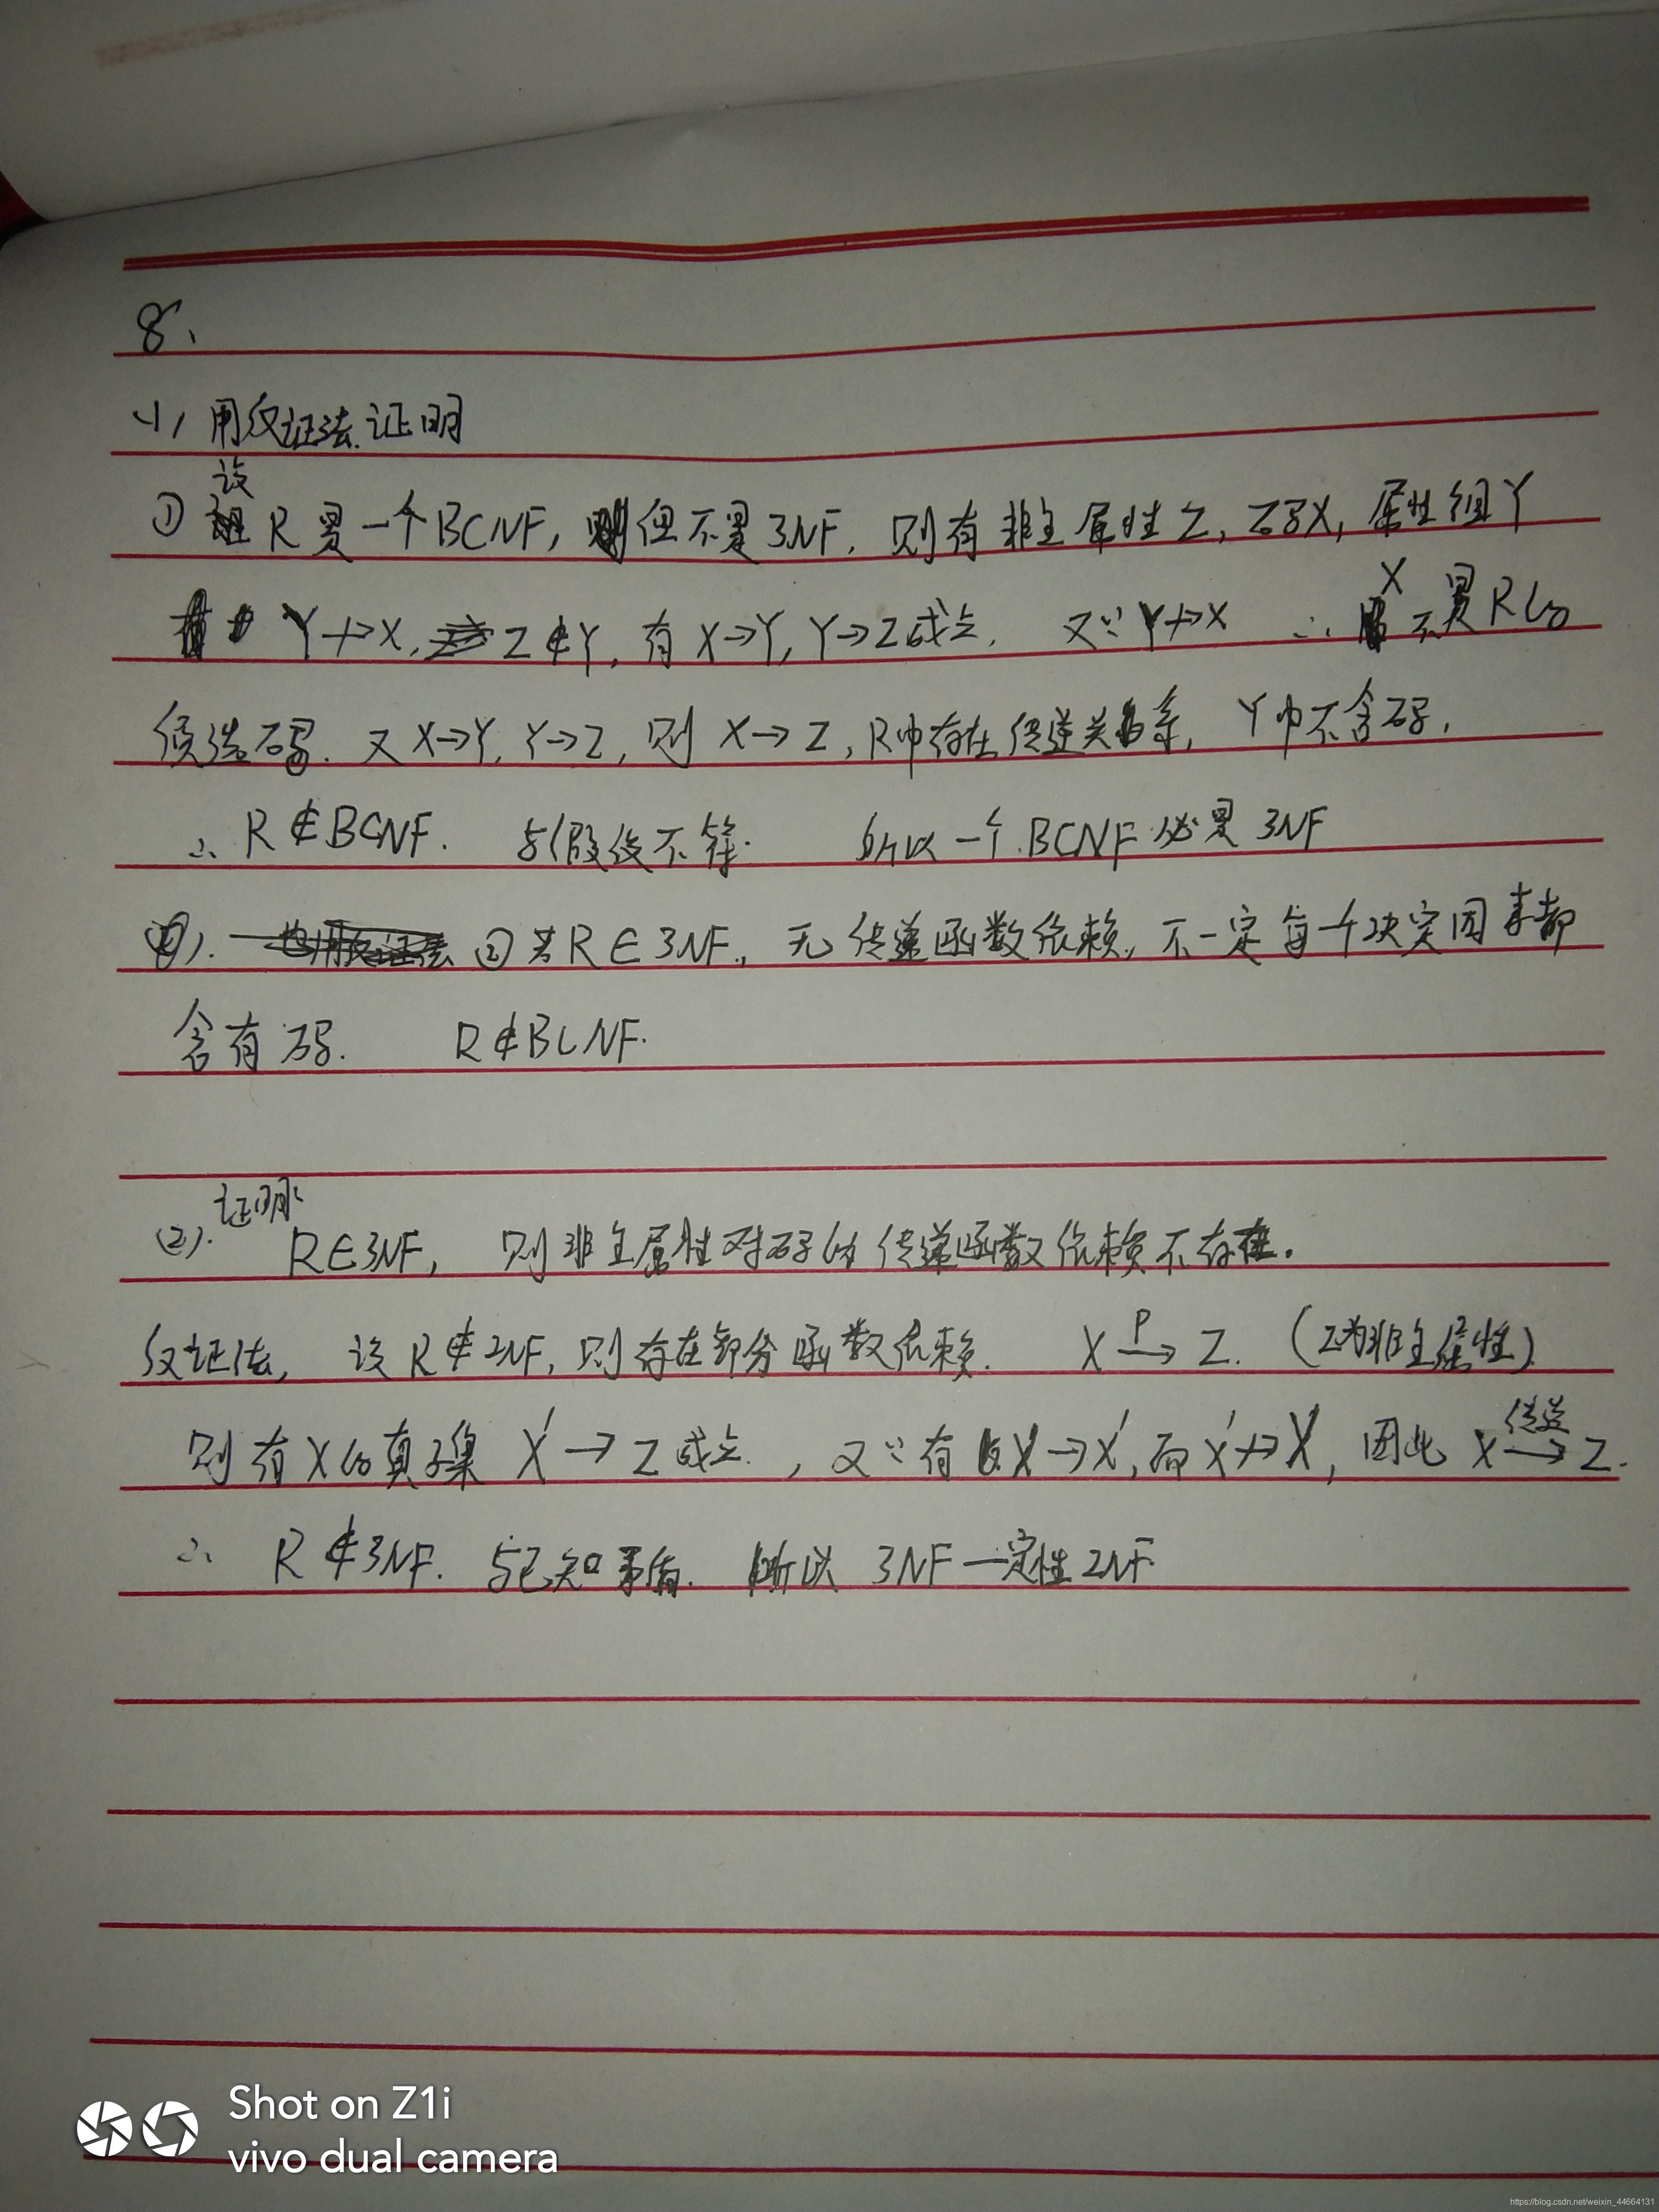 8、
(1) 用反证法证明
① 设R是一个BCNF，但不是3NF．则有非主属性Z，码X，属性组Y
Y↛X，Z∉Y，有X→Y，Y→Z成立．又∵Y↛X ∴X不是R的
候选码．又X→Y，Y→Z，则X→Z，R中存在传递关系，Y中不含码，
∴R∉BCNF．与假设不符．所以一个BCNF必是3NF
②若R∈3NF，无传递函数依赖，不一定每一个决定因素都
含有码．R∉BCNF．
(2)．证明
R∈3NF，则非主属性对码的传递函数依赖不存在．
反证法，设R∉2NF，则存在部分函数依赖．X P→ Z．（Z为非主属性）
则有X的真子集X′→Z成立，又∵有X→X′，而X′↛X，因此X 传递→ Z．
∴R∉3NF．与已知矛盾．所以3NF一定性2NF
Shot on Z1i
vivo dual camera
https://blog.csdn.net/weixin_44664131